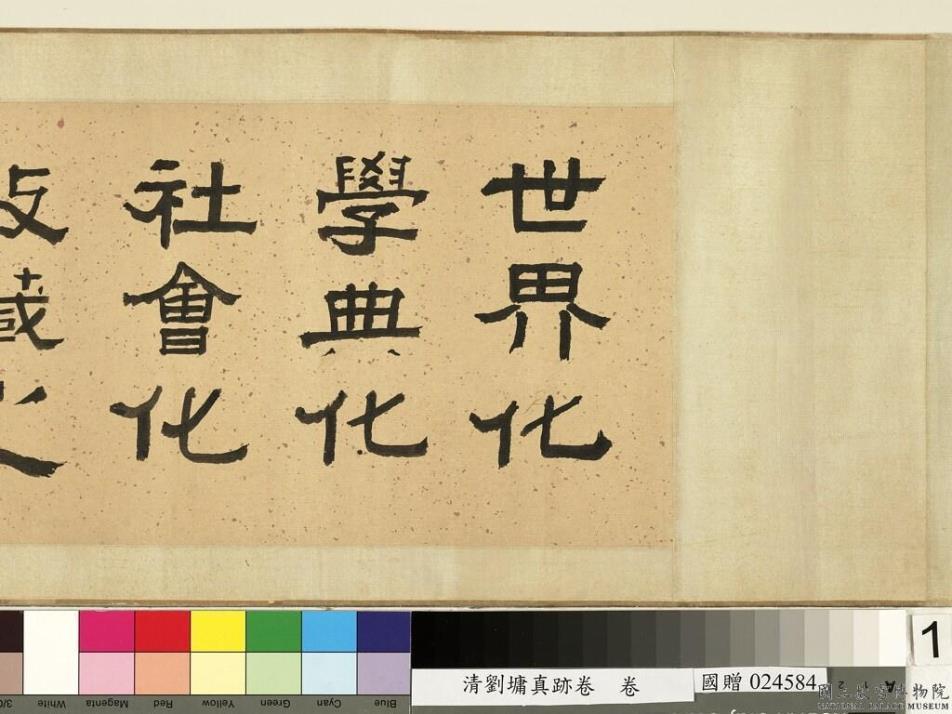 世界化
學典化
社會化
清劉墉真跡卷 卷
國贈 024584
1
Blue
Cyan
Green
Yellow
Red
Magenta
White
國立故宮博物院
NATIONAL PALACE MUSEUM